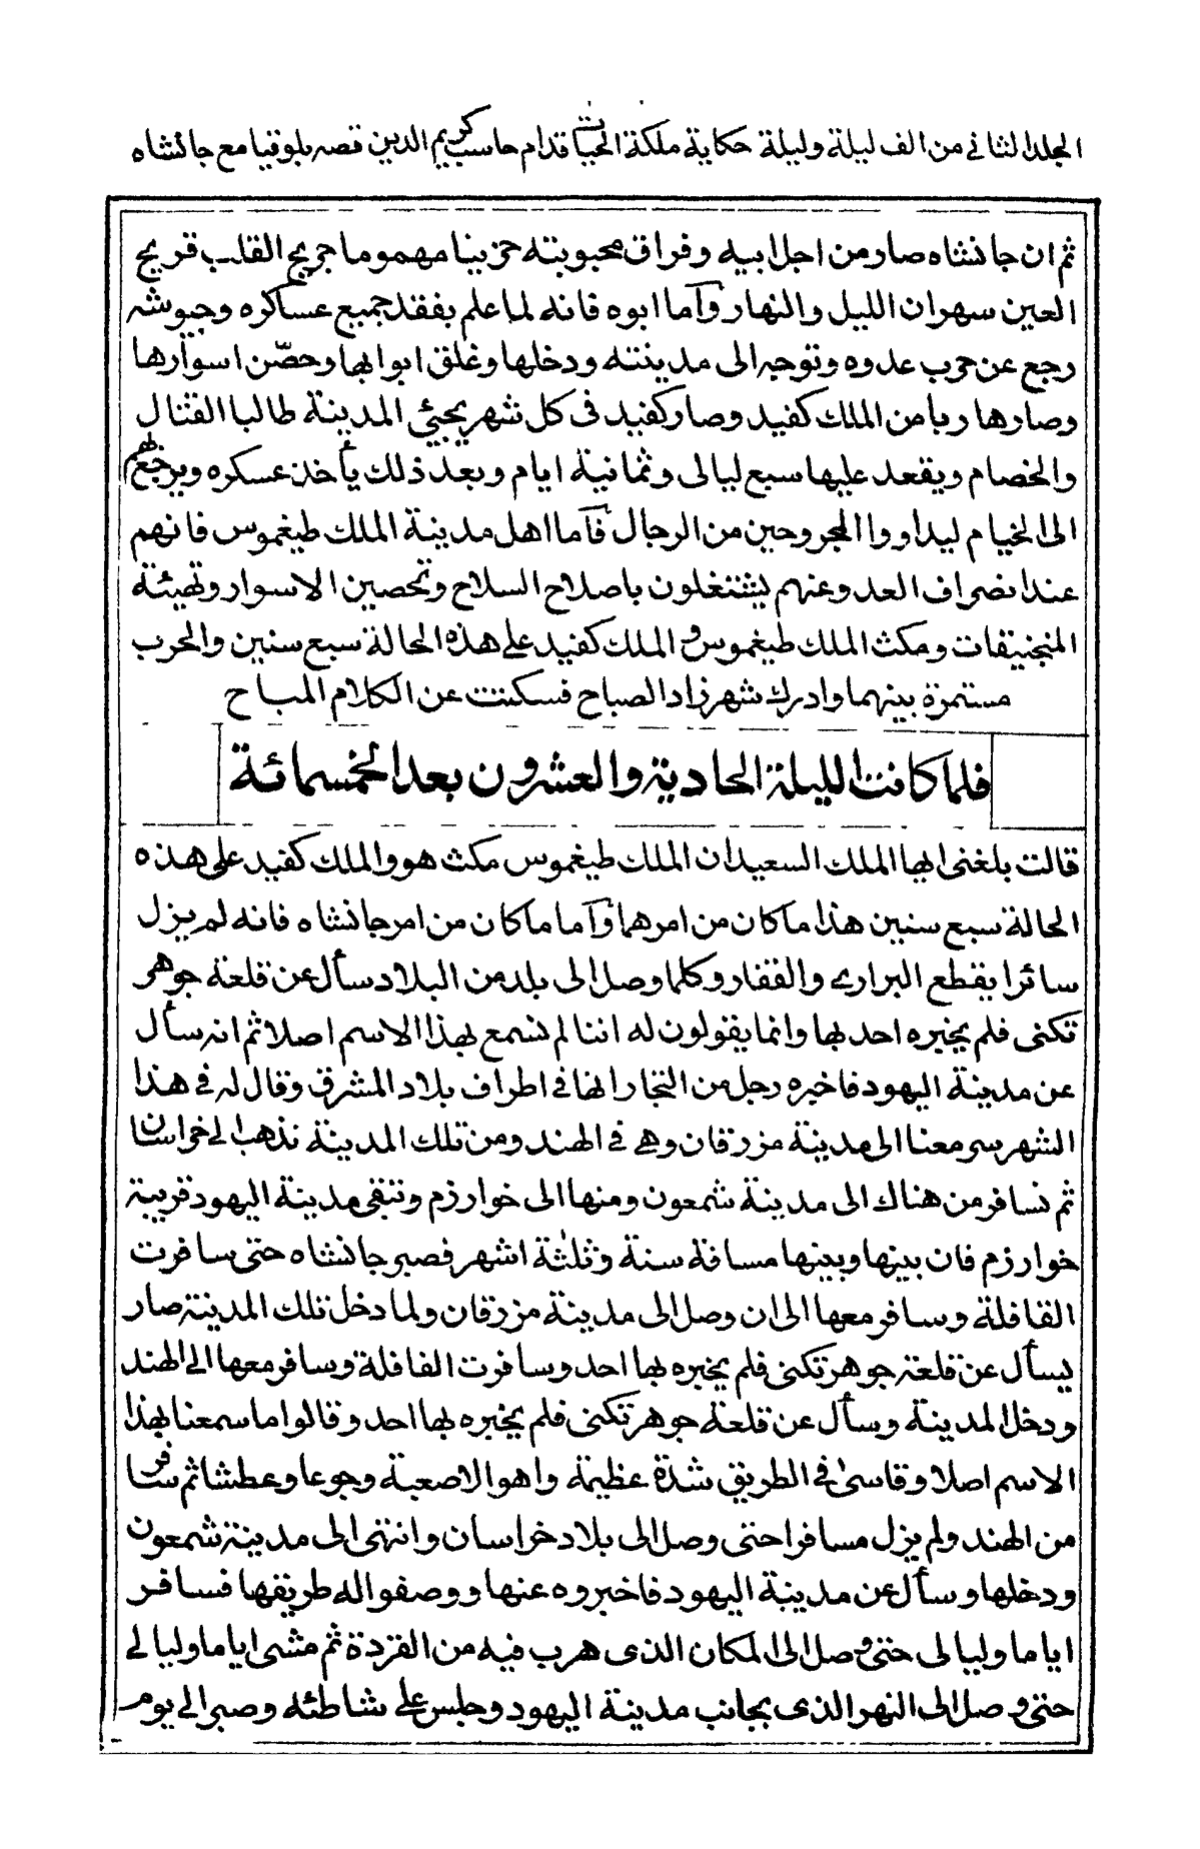 المجلد الثانى من الف ليلة وليلة حكاية ملكة الحيات قدام حاسب كريم الدين قصه بلوقيا مع جانشاه
ثم ان جانشاه صار من اجل ابيه وفراق محبوبته حزينا مهموما جريح القلب قريح
العين سهران الليل والنهار وآما ابوه فانه لما علم بفقد جميع عساكره وجيوشه
رجع عن حرب عدوه وتوجه الى مدينته ودخلها وغلق ابوابها وحصّن اسوارها
وصار هاربا من الملك كفيد وصار كفيد فى كل شهر يجيئ المدينة طالبا القتال
والخصام ويقعد عليها سبع ليالى وثمانية ايام وبعد ذلك يأخذ عسكره ويرجع بهم
الى الخيام ليداووا المجروحين من الرجال فآما اهل مدينة الملك طيغموس فانهم
عند انصراف العدو عنهم يشتغلون باصلاح السلاح وتحصين الاسوار وتهيئة
المنجنيقات ومكث الملك طيغموس والملك كفيد على هذه الحالة سبع سنين والحرب
مستمرة بينهما وادرك شهرزاد الصباح فسكتت عن الكلام المباح
فلما كانت الليلة الحادية والعشرون بعد الخمسمائة
قالت بلغنى ايها الملك السعيد ان الملك طيغموس مكث هو والملك كفيد على هذه
الحالة سبع سنين هذا ما كان من امرهما وآما ما كان من امر جانشاه فانه لم يزل
سائرا يقطع البرارى والقفار وكلما وصل الى بلد من البلاد سأل عن قلعة جوهر
تكنى فلم يخبره احد بها وانما يقولون له اننا لم نسمع بهذا الاسم اصلا ثم انه سأل
عن مدينة اليهود فاخبره رجل من التجار انها فى اطراف بلاد المشرق وقال له فى هذا
الشهر سر معنا الى مدينة مزرقان وهى فى الهند ومن تلك المدينة نذهب الى خراسان
ثم نسافر من هناك الى مدينة شمعون ومنها الى خوارزم وتبقى مدينة اليهود قريبة
خوارزم فان بينها وبينها مسافة سنة وثلثة اشهر فصبر جانشاه حتى سافرت
القافلة وسافر معها الى ان وصل الى مدينة مزرقان ولما دخل تلك المدينة صار
يسأل عن قلعة جوهر تكنى فلم يخبره بها احد وسافرت القافلة وسافر معها الى الهند
ودخل المدينة وسأل عن قلعة جوهر تكنى فلم يخبره بها احد وقالوا ما سمعنا بهذا
الاسم اصلا وقاسى فى الطريق شدة عظيمة واهوالا صعبة وجوعا وعطشا ثم سافر
من الهند ولم يزل مسافرا حتى وصل الى بلاد خراسان وانتهى الى مدينة شمعون
ودخلها وسأل عن مدينة اليهود فاخبروه عنها ووصفوا له طريقها فسافر
اياما وليالى حتى وصل الى المكان الذى هرب فيه من القردة ثم مشى اياما وليالى
حتى وصل الى النهر الذى بجانب مدينة اليهود وجلس على شاطئه وصبر الى يوم